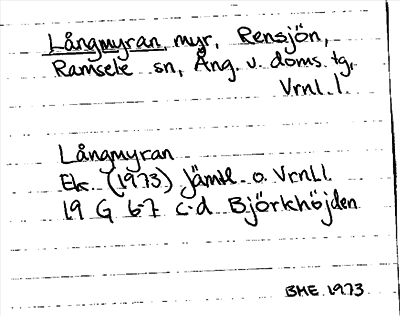 Långmyran, myr, Rensjön,
Ramsele sn, Ång. v. doms. tg,
Vrnl. l.
Långmyran
Ek. (1973) Jämtl. o. Vrnl l.
19 G 6-7 c-d Björkhöjden
BHE 1973